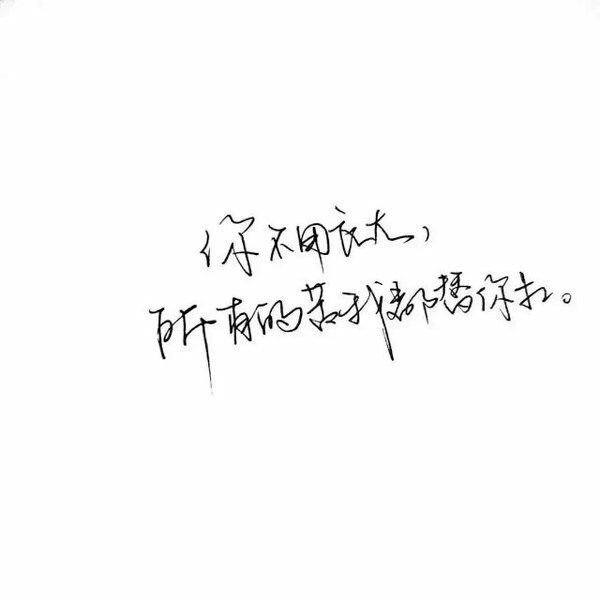 你不用长大，
所有的苦我都替你扛。